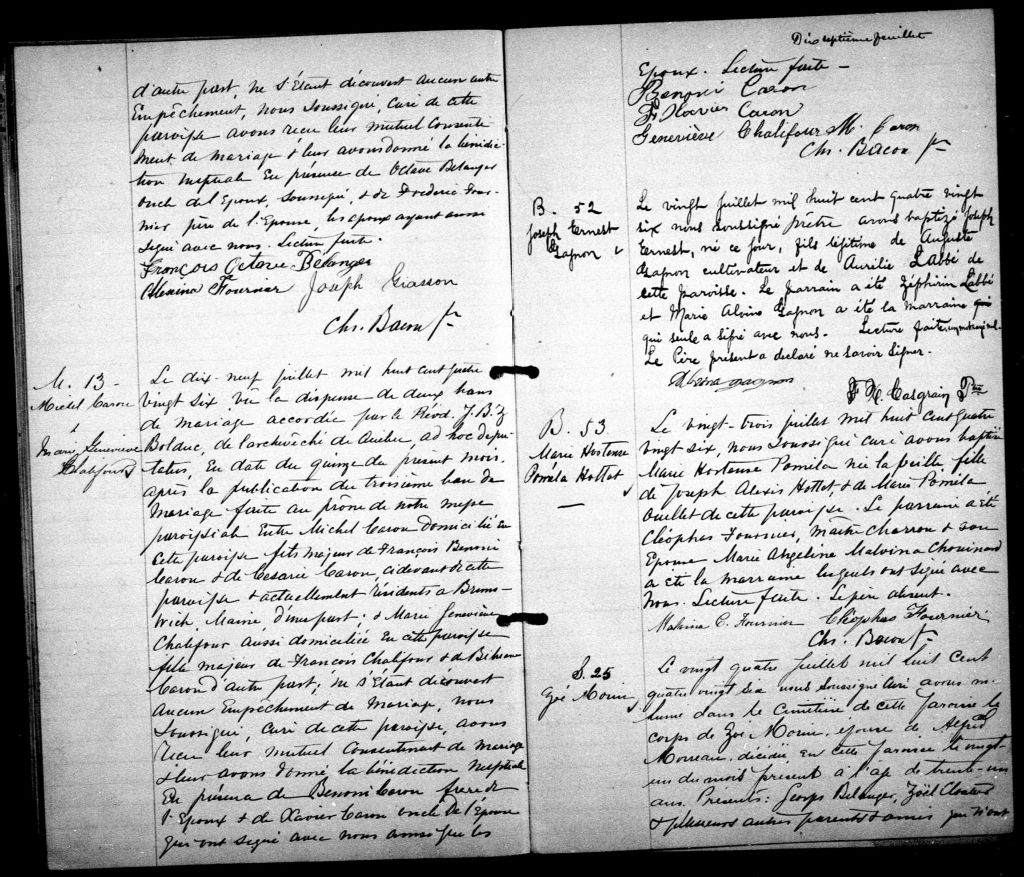 d'autre part, ne s'étant découvert aucun autre
Empêchement, nous soussigné, curé de cette
paroisse avons reçu leur mutuel consente
ment de mariage & leur avons donné la bénédic
tion nuptiale En présence de Octave Bélanger
oncle de l'Epoux, soussigné, & de Frédéric Four
nier père de l'Epouse, les époux ayant aussi
signé avec nous. Lecture faite.
François Octave Bélanger
Alexina Fournier Joseph Giasson
Chs. Bacon Ptr
M. 13 -
Michel Caron
&
Marie Geneviève
Chalifour
Le dix-neuf juillet mil huit cent quatre
vingt six vu la dispense de deux bans
de mariage accordée par le Révd. J. B. Z
Bolduc, de l'archevêché de Québec, ad hoc depu
tatus, En date du quinze du présent mois.
après la publication du troisième ban de
Mariage faite au prône de notre messe
paroissiale Entre Michel Caron domicilié en
cette paroisse fils majeur de François Benoni
Caron & de Césarie Caron, ci devant de cette
paroisse & actuellement résidents à Bruns-
wich, Maine d'une part; & Marie Geneviève
Chalifour aussi domiciliée En cette paroisse
fille majeur de François Chalifour & de
Caron d'autre part; ne s'étant découvert
aucun Empêchement de Mariage, nous
soussigné, curé de cette paroisse, avons
reçu leur mutuel Consentement de mariage
& leur avons donné la bénédiction nuptiale
En présence de Benoni Caron frère de
l'Epoux & de Xavier Caron oncle de l'Epouse
qui ont signé avec nous ainsi que les
Dix septième feuillet
Epoux. Lecture faite -
Benoni Caron
F Xavier Caron
Geneviève Chalifour M. Caron
Chs. Bacon Ptr
B. 52
Joseph Ernest
Gagnon
Le vingt juillet mil huit cent quatre vingt
six nous soussigné prêtre avons baptizé Joseph
Ernest, né ce jour, fils légitime de Auguste
Gagnon cultivateur et de Aurélie Labbé de
cette paroisse. Le parrain a été Zéphirin Labbé
et Marie Alvina Gagnon a été la marraine qui
qui seule a signé avec nous. Lecture faite
Le Père présent a déclaré ne savoir signer.
Alvina Gagnon
F X Casgrain Ptre
B. 53
Marie Hortense
Poméla Hottot
Le vingt-trois juillet mil huit cent quatre
vingt six, nous soussigné curé avons baptisé
Marie Hortense Poméla née la veille, fille
de Joseph Alexis Hottot, & de Marie Poméla
Ouellet de cette paroisse. Le parrain a été
Cléophas Fournier, Maître Charron & son
Epouse Marie Angeline Malvina Chouinard
a été la marraine lesquels ont signé avec
Nous. Lecture faite. Le père absent.
Malvina C. Fournier Cléophas Fournier
Chs. Bacon Ptr
S. 25
Zoé Morin
Le vingt quatre juillet mil huit cent
quatre vingt six nous soussigné curé avons in-
humé dans le cimetière de cette paroisse le
corps de Zoé Morin, épouse de Alfred
Moreau, décédée en cette paroisse le vingt-
un du mois présent à l'age de trente-un
ans. Présents: Georges Bélanger, Joël
& plusieurs autres parents & amis qui n'ont